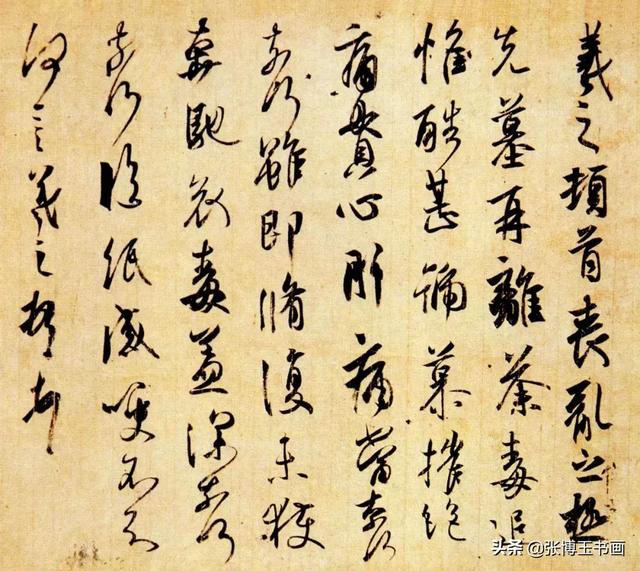 羲之頓首喪亂之極
先墓再離荼毒追
惟酷甚號慕摧絕
痛貫心肝痛當奈何
奈何雖即脩復未獲
奔馳哀毒益深奈何
奈何臨紙感哽不知
何言羲之頓首頓首
头条 @张博玉书画